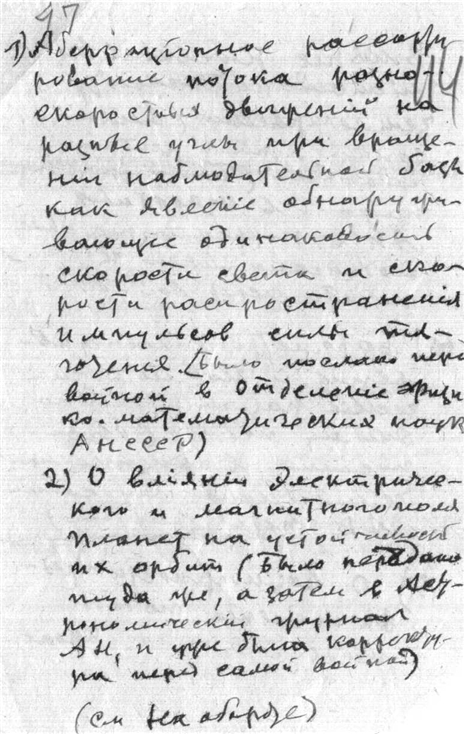 47
114
1) Аберрационное рассорти-
рование потока разно-
скоростных движеній на
разные углы при враще-
ніи наблюдательной базы
как явленіе обнаружи-
вающее одинаковость
скорости света и ско-
рости распространенія
импульсов силы тя-
готения. (Было послано перед
войной в Отделеніе физи-
ко-математических наук
АН СССР)
2) О вліяніи электриче-
кого и магнитного поля
планет на устойчивость
их орбит (Было передано
туда же, а затем в Аст-
рономическій журнал
АН, и уже была корректу-
ра перед самой войной)
(см на обороте)